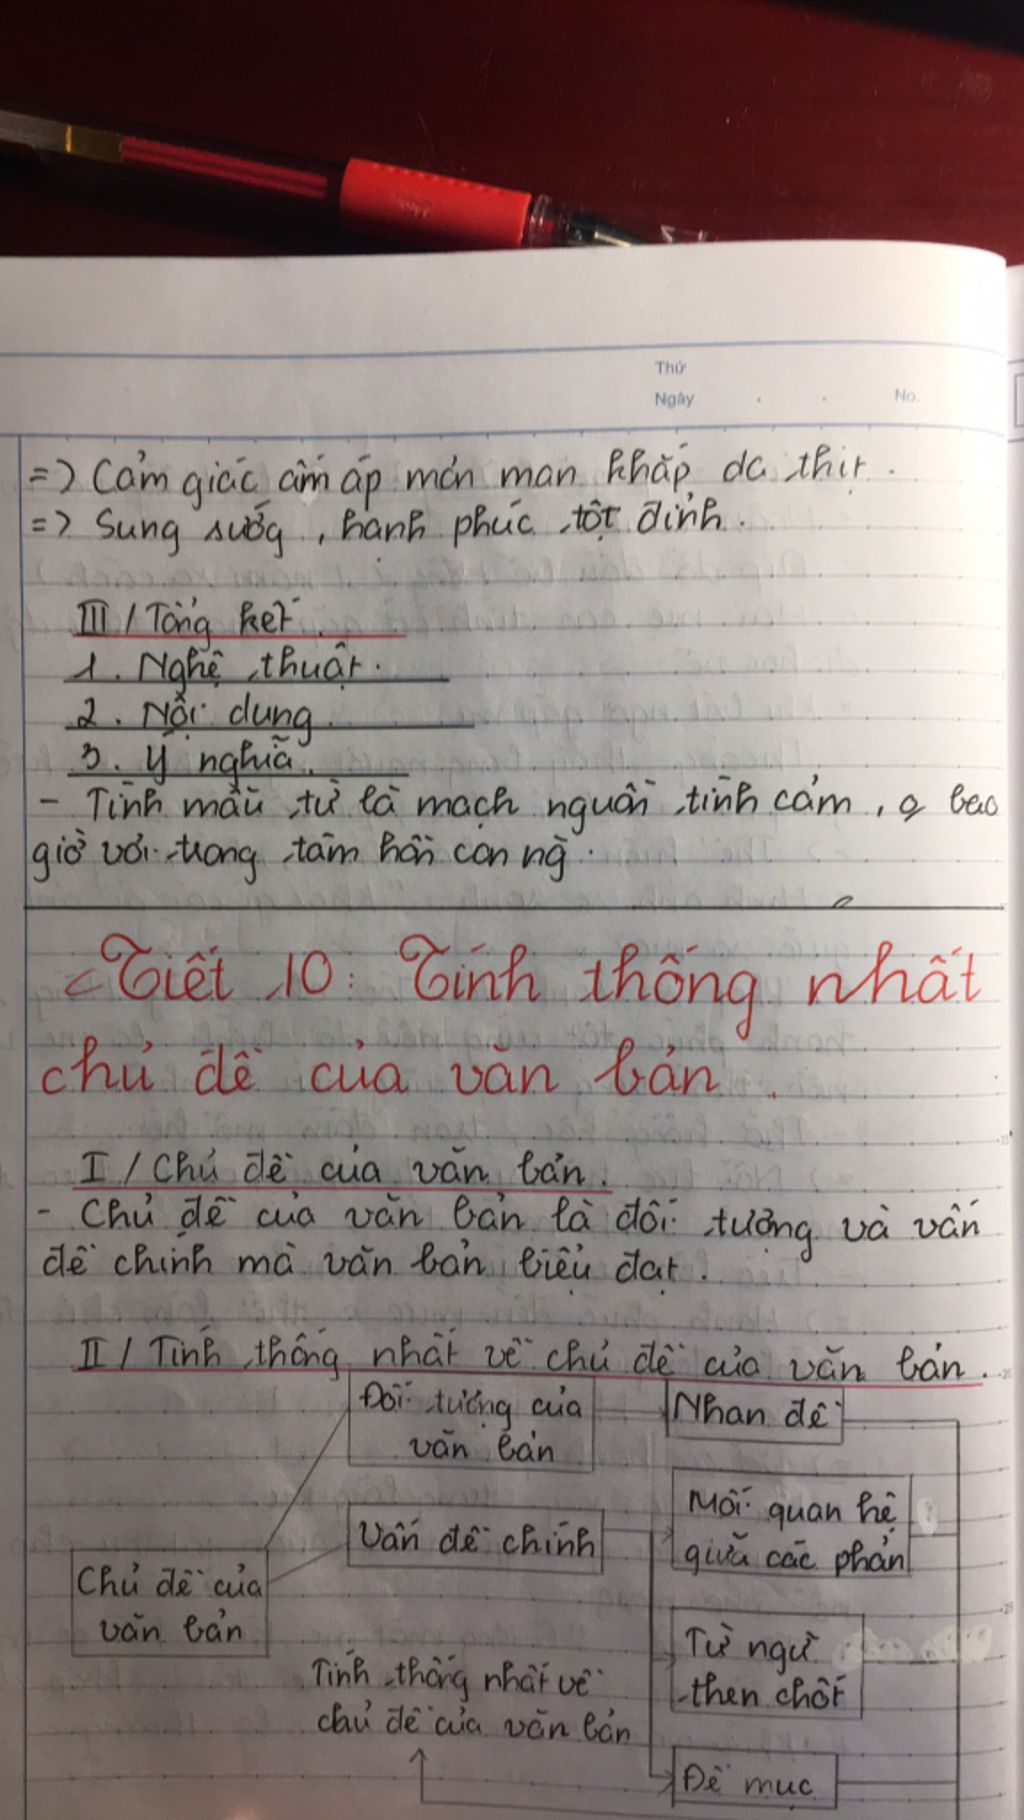 Thứ
Ngày
No.
=> Cảm giác ấm áp mơn man khắp da thịt.
=> Sung sướg, hạnh phúc tột đỉnh.
III / Tổng kết
1. Nghệ thuật.
2. Nội dung
3. Ý nghĩa.
- Tình mẫu tử là mạch nguồn tình cảm, o bao
giờ vơi trong tâm hồn con ng̀.
Tiết 10: Tính thống nhất
chủ đề của văn bản.
I / Chủ đề của văn bản.
- Chủ đề của văn bản là đối tượng và vấn
đề chính mà văn bản biểu đạt.
II / Tính thống nhất về chủ đề của văn bản.
Đối tượng của
văn bản
Nhan đề
Vấn đề chính
Mối quan hệ
giữa các phần
Chủ đề của
văn bản
Từ ngữ
then chốt
Tính thống nhất về
chủ đề của văn bản
Đề mục